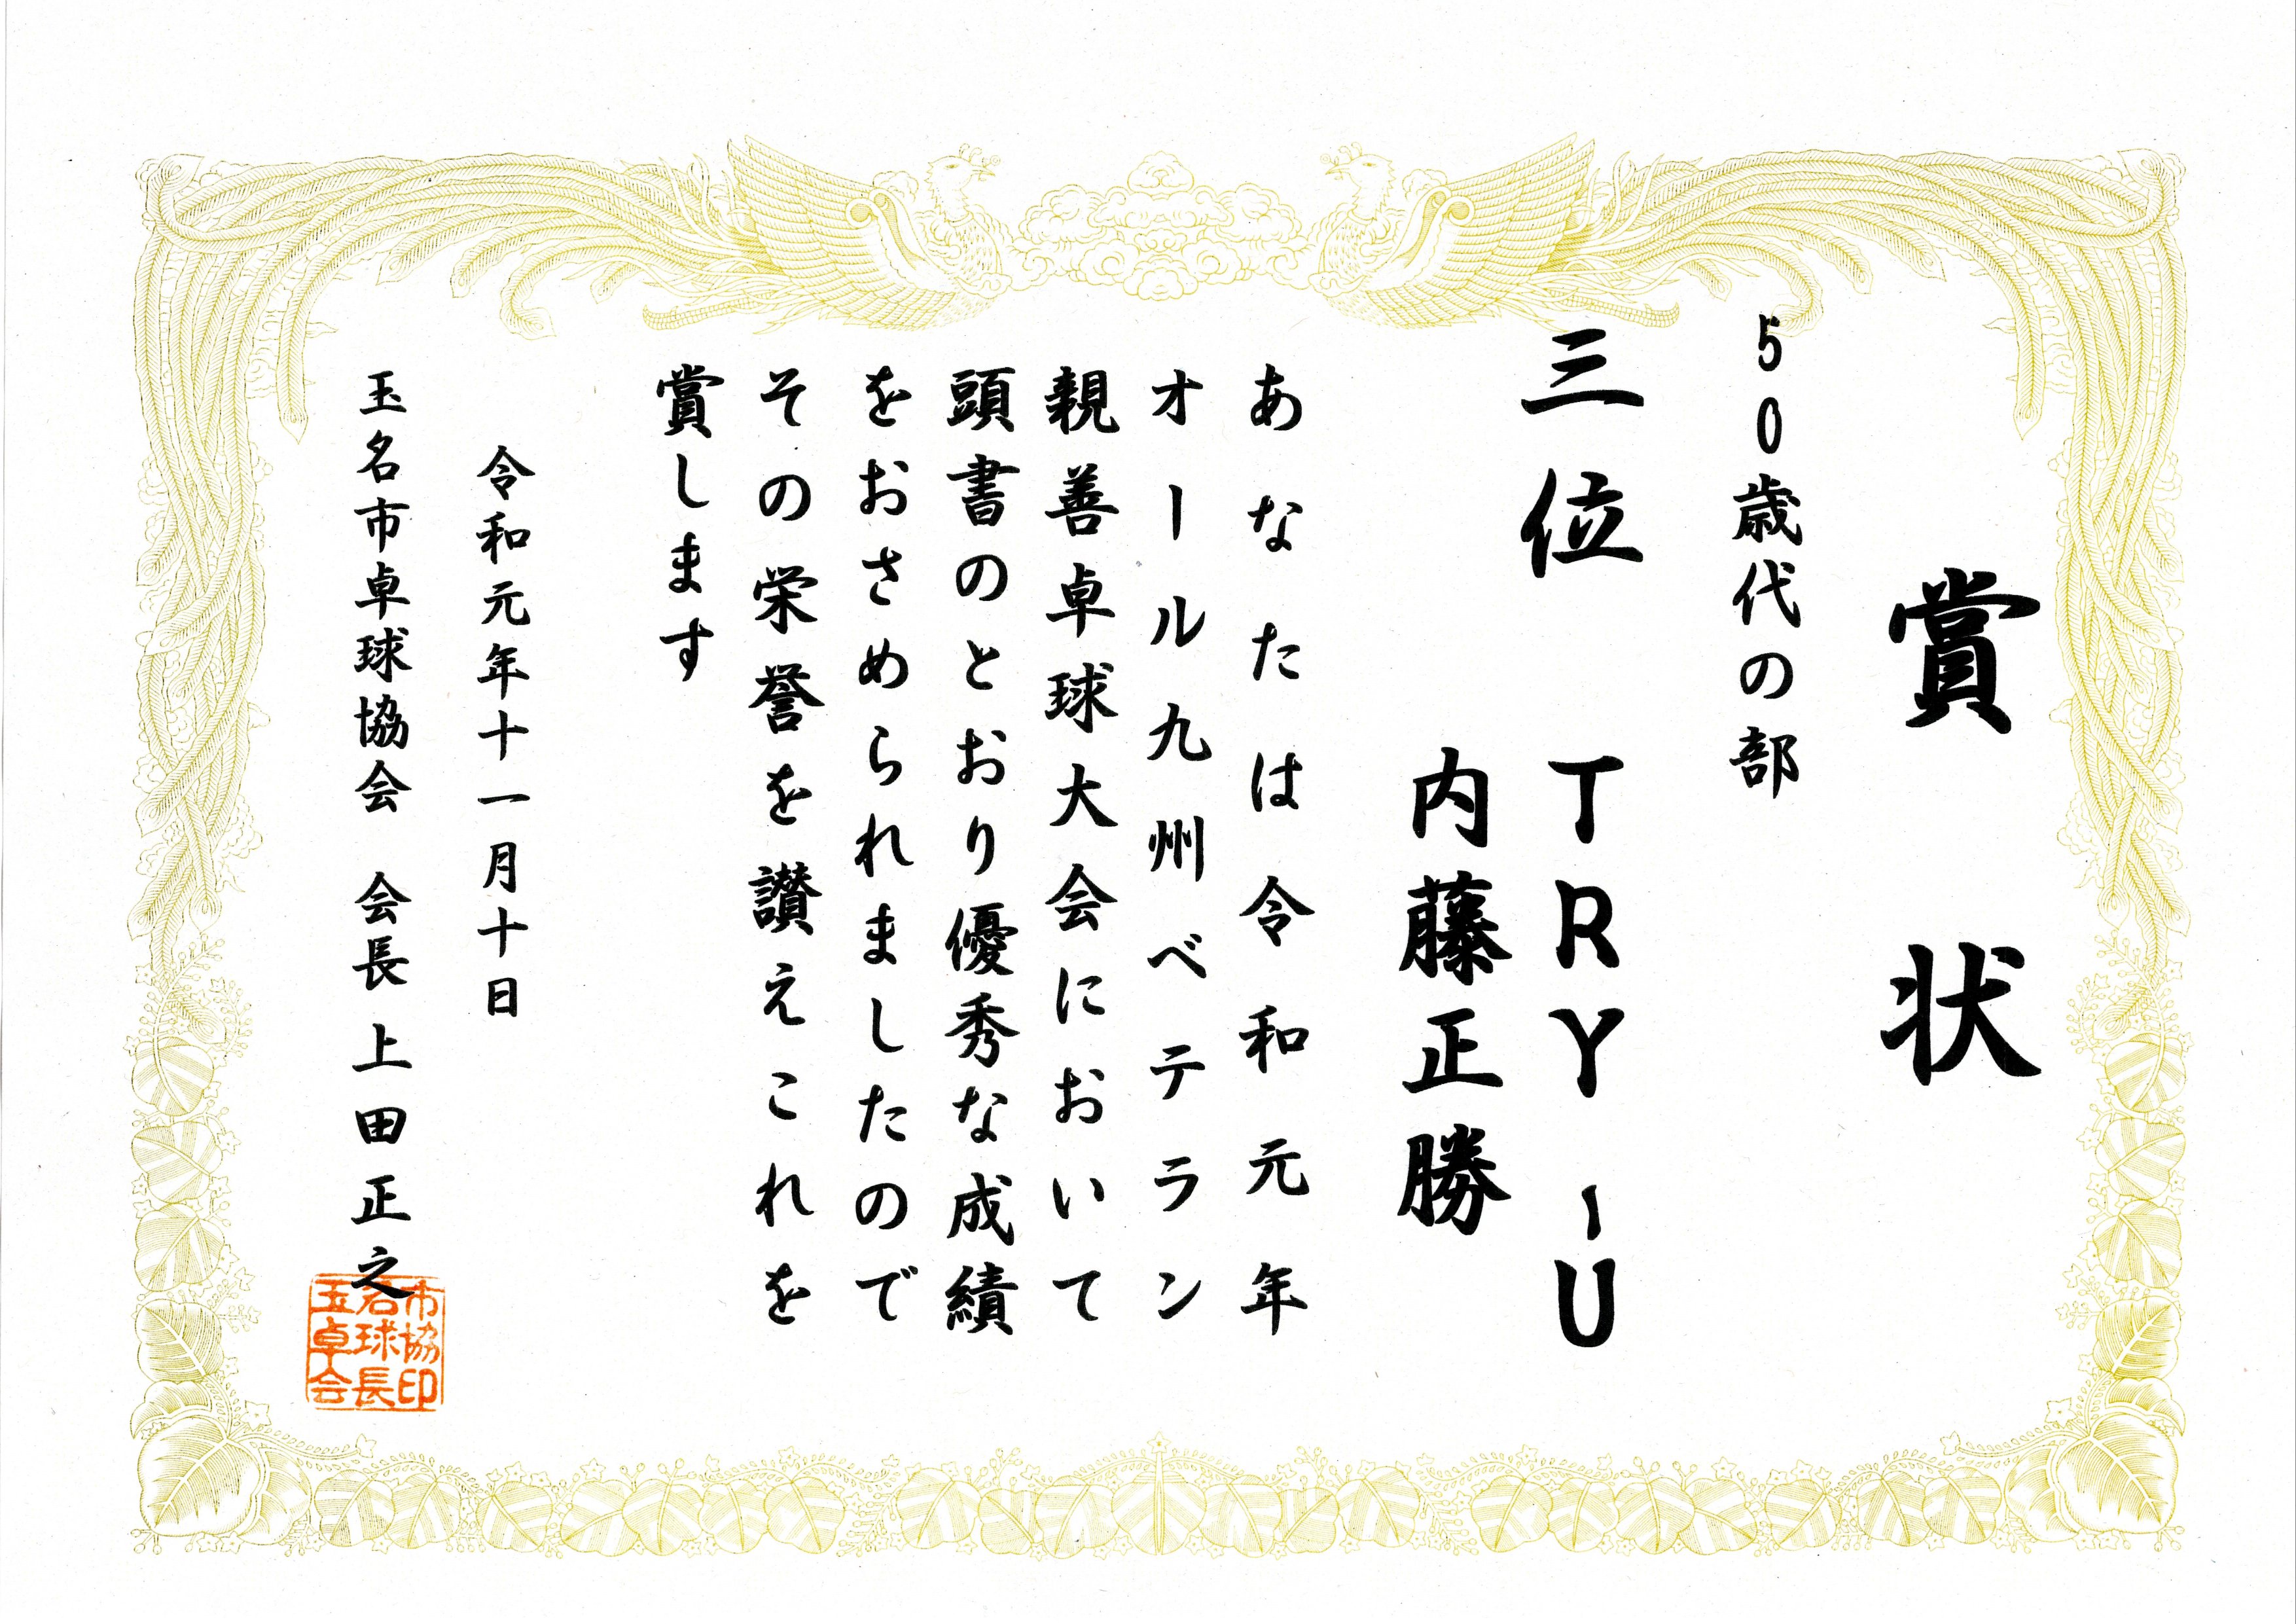 賞状
50歳代の部
三位 TRY-U
内藤正勝
あなたは令和元年
オール九州ベテラン
親善卓球大会において
頭書のとおり優秀な成績
をおさめられましたので
その栄誉を讃えこれを
賞します
令和元年十一月十日
玉名市卓球協会 会長 上田正之
玉名市
卓球協
会長印